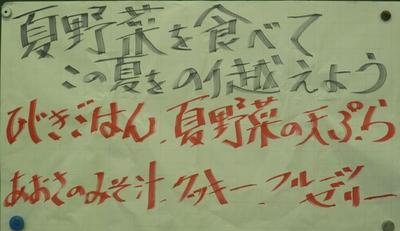 夏野菜を食べて
この夏をのり越えよう
ひじきごはん、夏野菜の天ぷら
あおさのみそ汁、クッキー、フルーツ
ゼリー